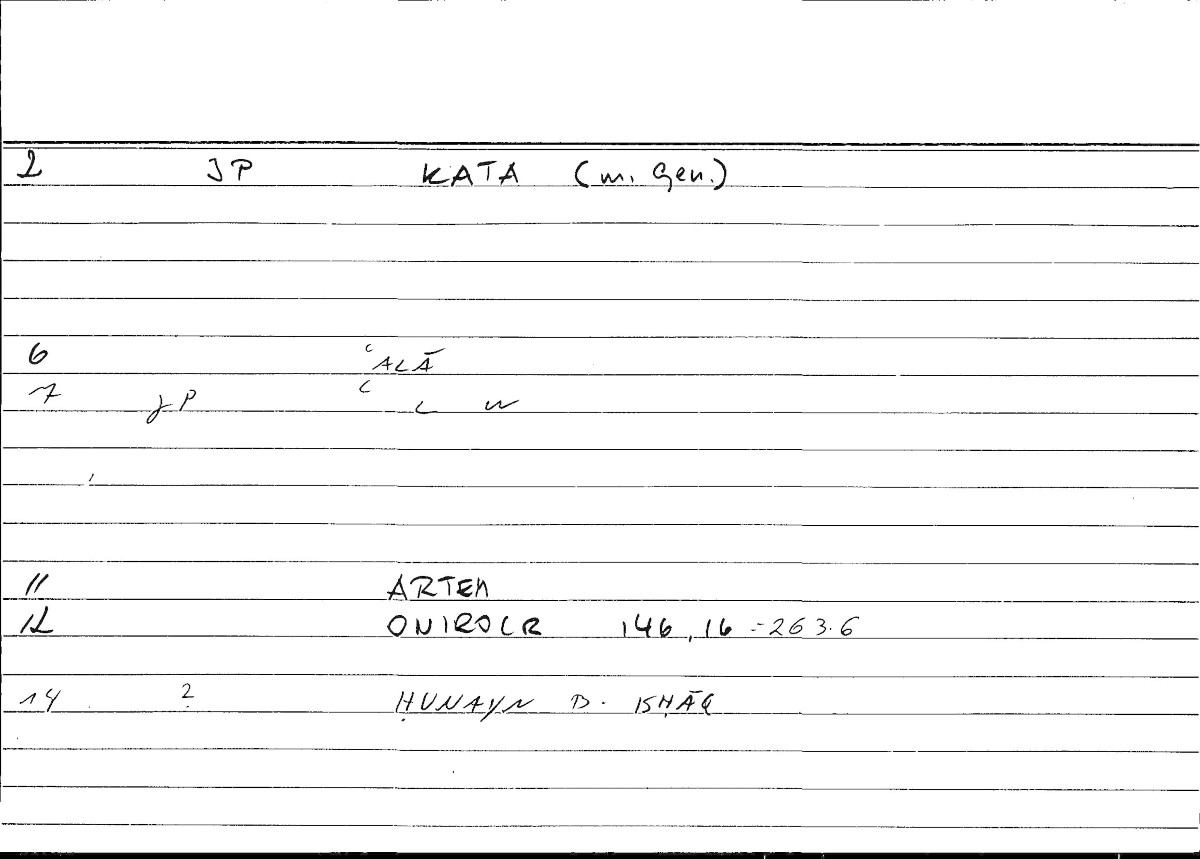 2 JP KATA (m. Gen.)
6 ʿALĀ
7 JP ʿ L W
11 ARTEM
12 ONIROCR 146,16 = 263.6
14 2 ḤUNAYN B. ISḤĀQ